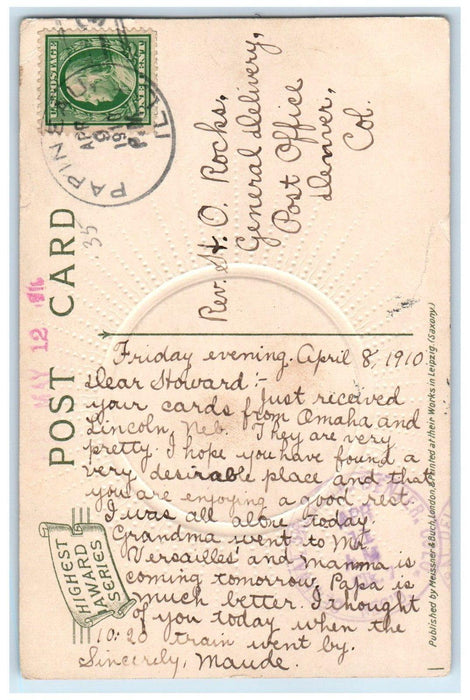 U.S. POSTAGE
ONE CENT
PAPINEAU
ILL.
APR
9
1910
POST CARD
35
MAY 12
Rev. H. O. Rocks,
General delivery,
Post Office
Denver,
Col.
Friday evening. April 8, 1910
Dear Howard:- Just received
your cards from Omaha and
Lincoln, Neb. They are very
pretty. I hope you have found a
very desirable place and that
you are enjoying a good rest.
I was all alone today.
Grandma went to Mt.
Versailles and mamma is
coming tomorrow. Papa is
much better. I thought
of you today when the
10:20 train went by.
Sincerely, Maude.
HIGHEST
AWARD
SERIES
Published by Meissner & Buch, London, & Printed at their Works in Leipzig (Saxony)